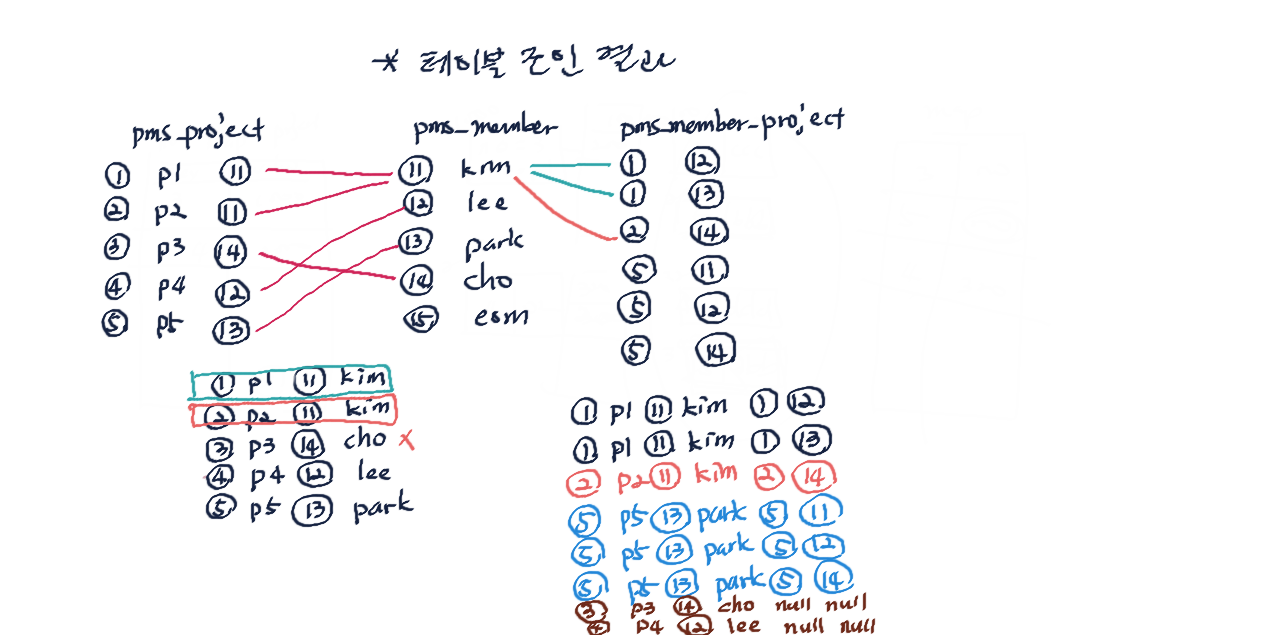 * 테이블 조인 결과
pms_project
① p1 ⑪
② p2 ⑪
③ p3 ⑭
④ p4 ⑫
⑤ p5 ⑬
pms_member
⑪ kim
⑫ lee
⑬ park
⑭ cho
⑮ eom
pms_member_project
① ⑫
① ⑬
② ⑭
⑤ ⑪
⑤ ⑫
⑤ ⑭
① p1 ⑪ kim
② p2 ⑪ kim
③ p3 ⑭ cho x
④ p4 ⑫ lee
⑤ p5 ⑬ park
① p1 ⑪ kim ① ⑫
① p1 ⑪ kim ① ⑬
② p2 ⑪ kim ② ⑭
⑤ p5 ⑬ park ⑤ ⑪
⑤ p5 ⑬ park ⑤ ⑫
⑤ p5 ⑬ park ⑤ ⑭
③ p3 ⑭ cho null null
④ p4 ⑫ lee null null